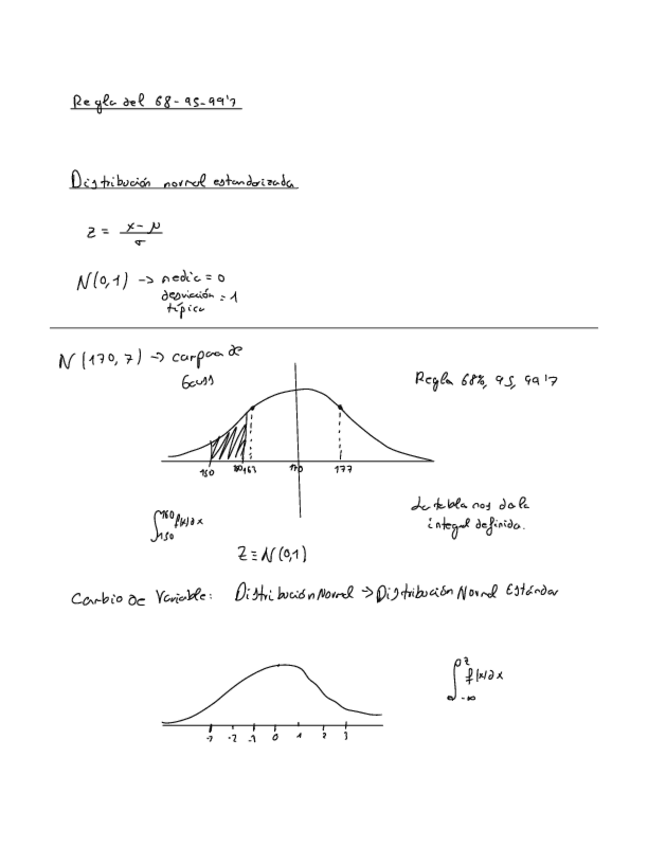 Regla del 68-95-99'7
Distribución normal estandarizada
z = x-μ / σ
N(0,1) -> media = 0
desviación = 1
típica
N(170,7) -> campana de
Gauss
Regla 68%, 95, 99'7
150 160 163 170 177
∫₁₅₀¹⁶⁰ f(x)dx
La tabla nos da la
integral definida.
Z ≡ N(0,1)
Cambio de Variable: Distribución Normal -> Distribución Normal Estándar
∫₋∞ᶻ f(x)dx
-3 -2 -1 0 1 2 3